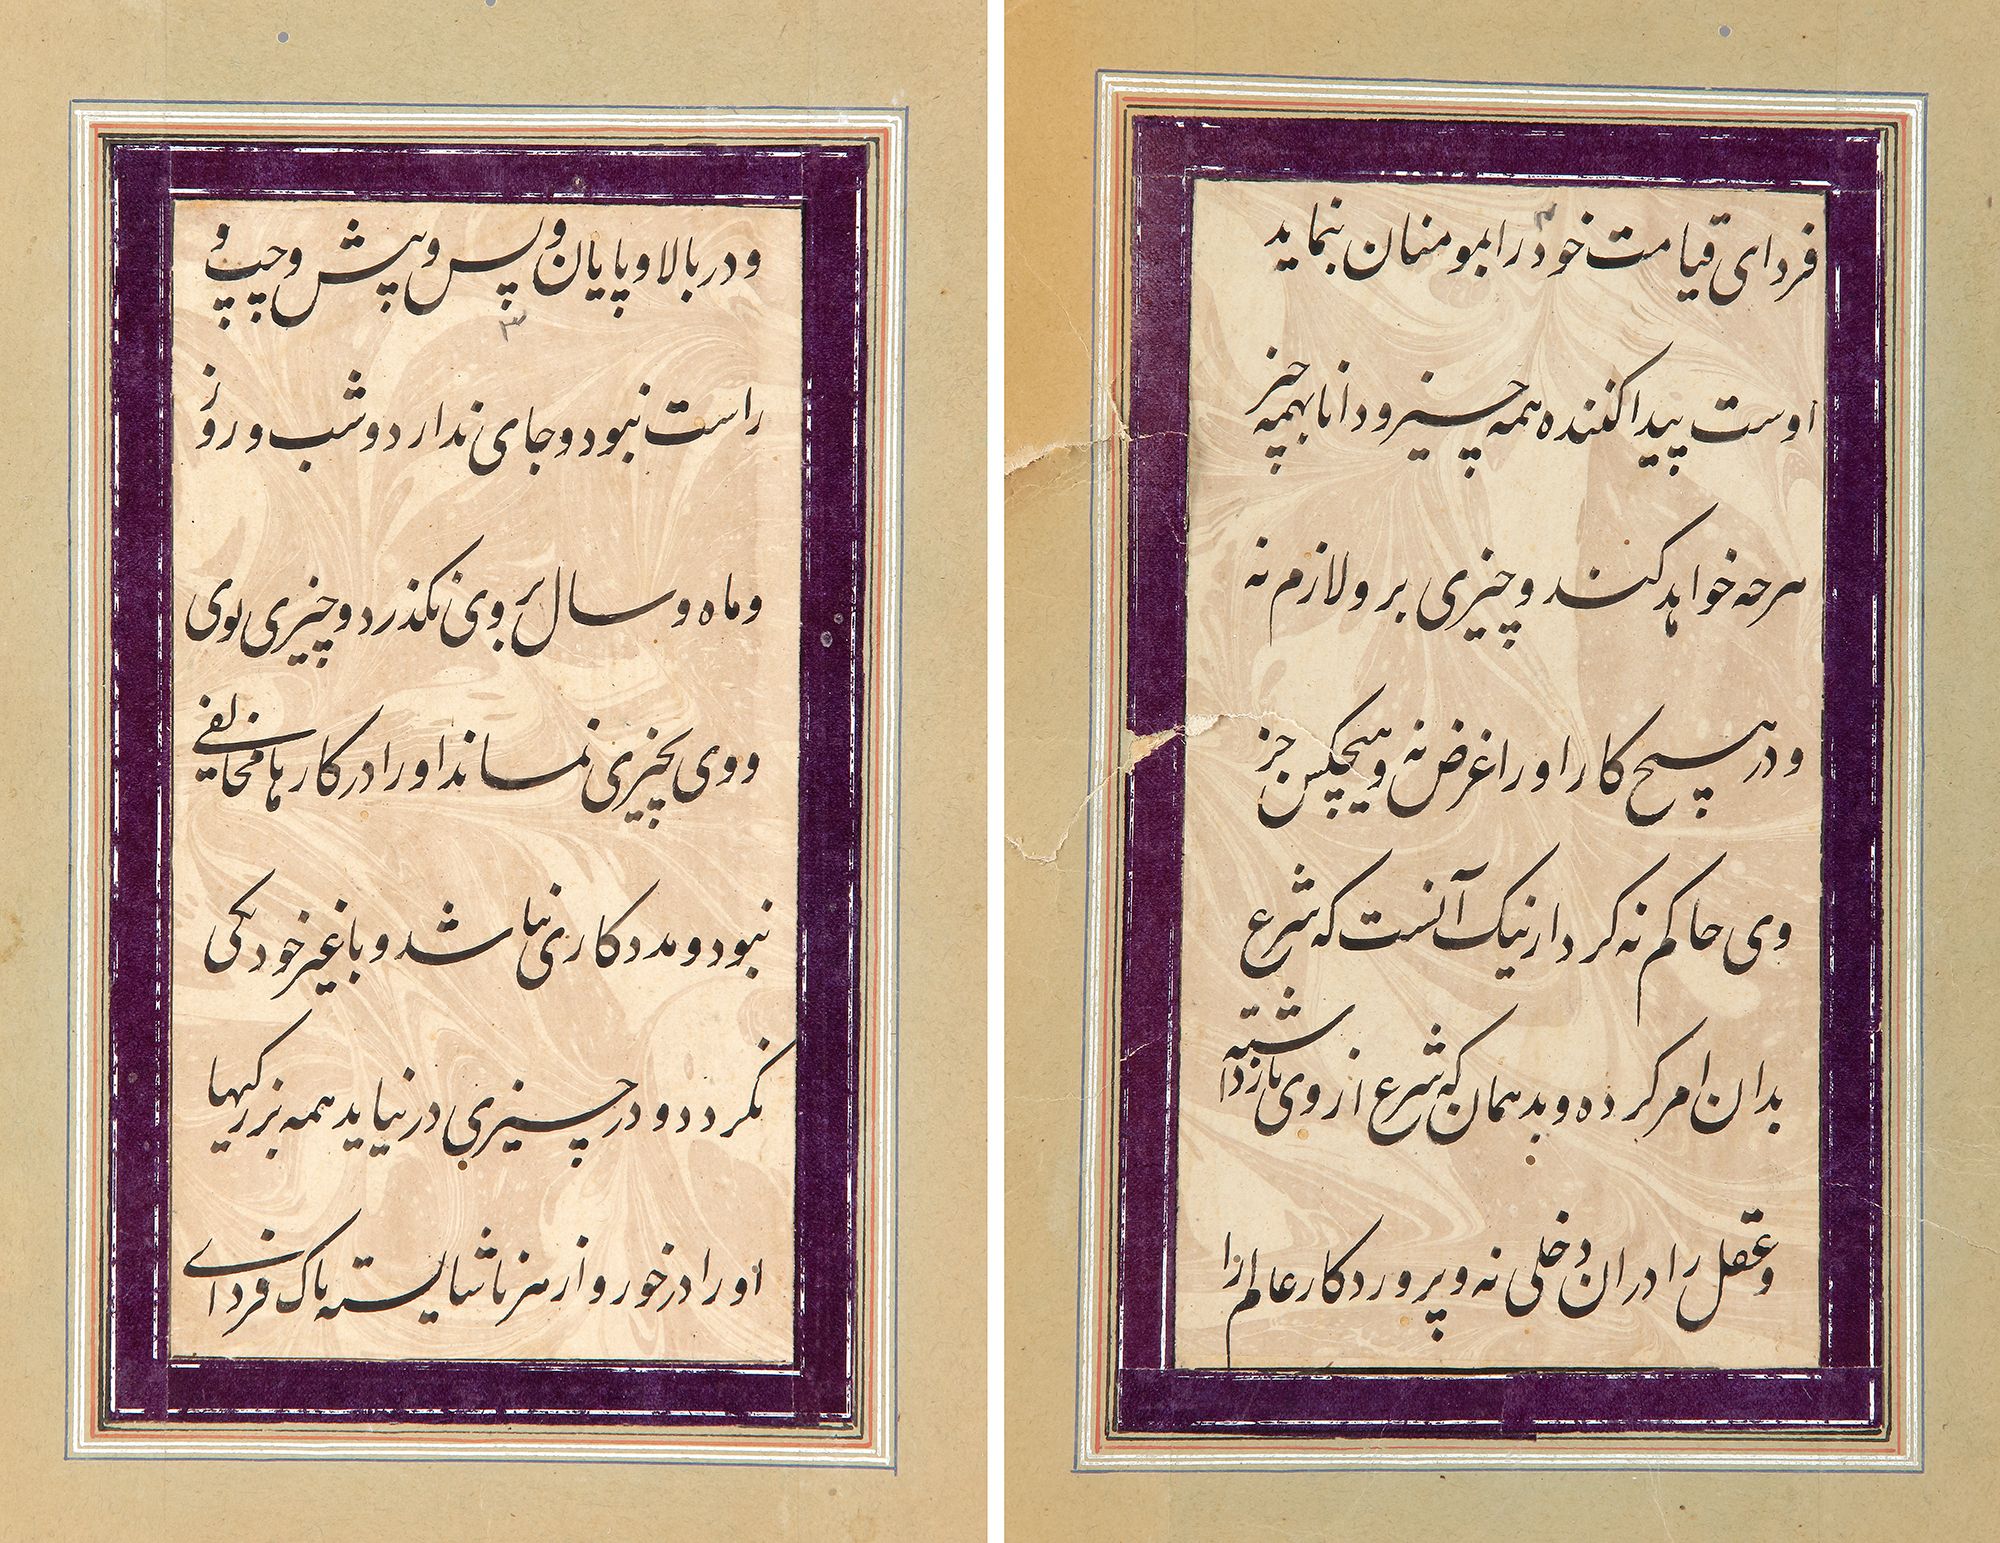 و در بالا و پایان و پس و پیش و چپ و
۳
راست نبود و جای ندارد و شب و روز
و ماه و سال بر وی نکذرد و چیزی بوی
و وی بچیزی نماند او را در کارها مخالفی
نبود و مددکاری نباشد و با غیر خود یکی
نکردد و در چیزی در نیاید همه بزرکیها
او را در خور و از هر ناشایسته پاک فردای
فردای قیامت خود را بمومنان بنماید
اوست پیدا کننده همه چیز و دانا بهمه چیز
هرچه خواهد کند و چیزی برو لازم نه
و در هیچ کار او را غرض نه و هیچکس جز
وی حاکم نه کردار نیک آنست که شرع
بدان امر کرده و بد همان که شرع از وی بازداشته
و عقل را در ان دخلی نه و پروردکار عالم را